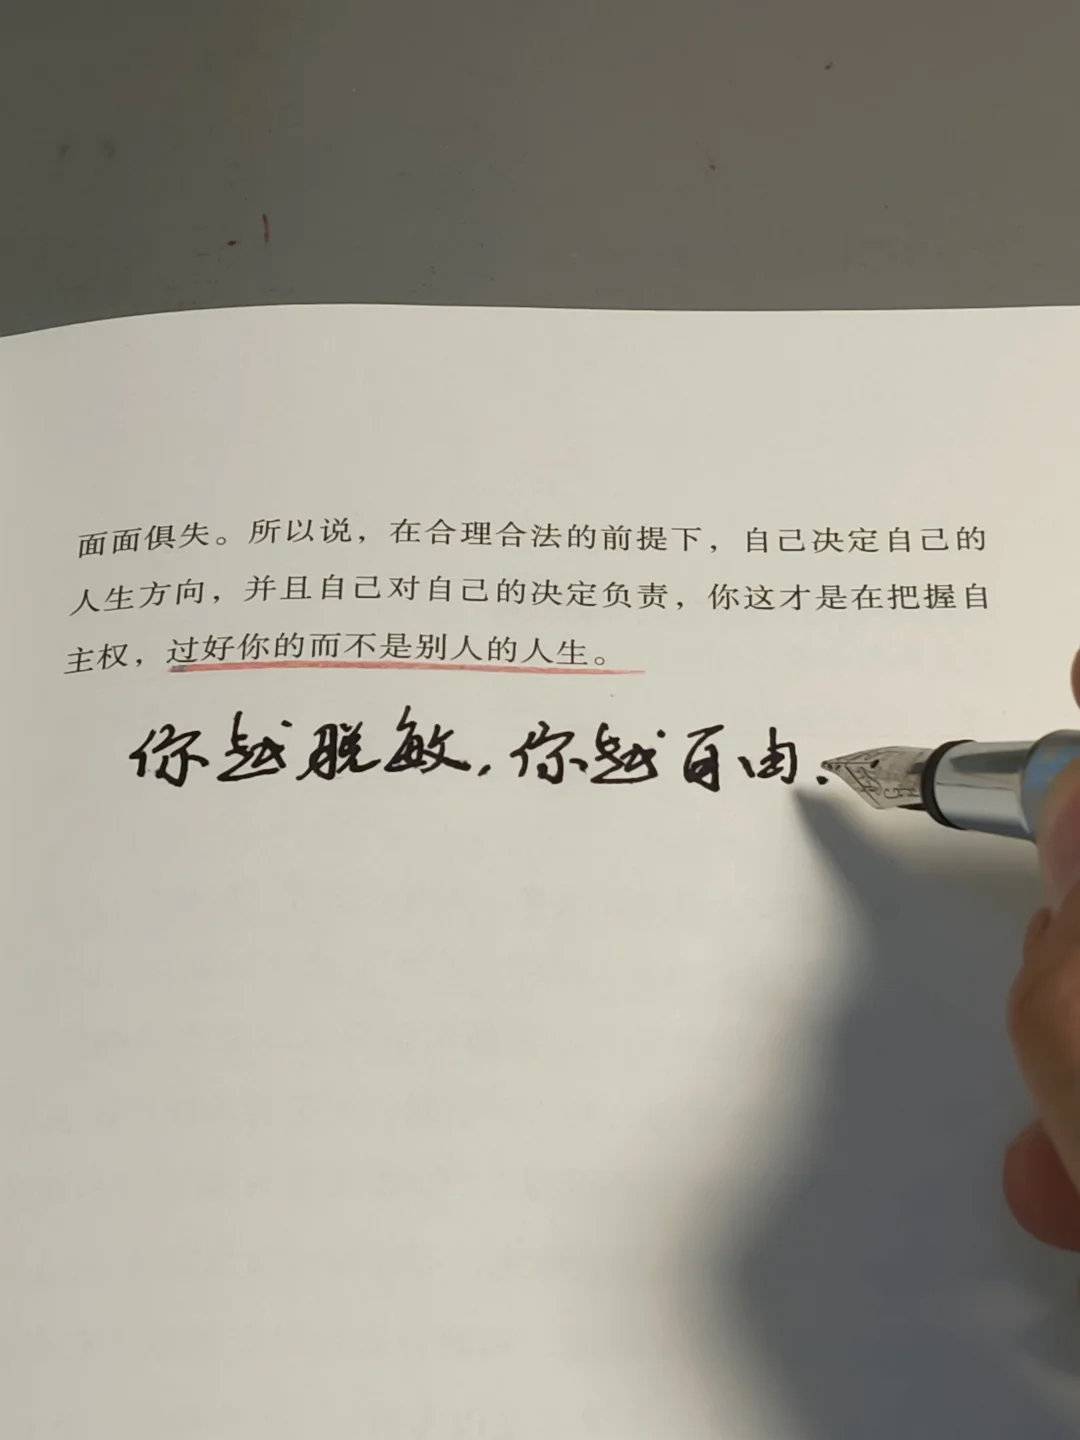 面面俱失。所以说，在合理合法的前提下，自己决定自己的
人生方向，并且自己对自己的决定负责，你这才是在把握自
主权，过好你的而不是别人的人生。
你越脱敏，你越自由.